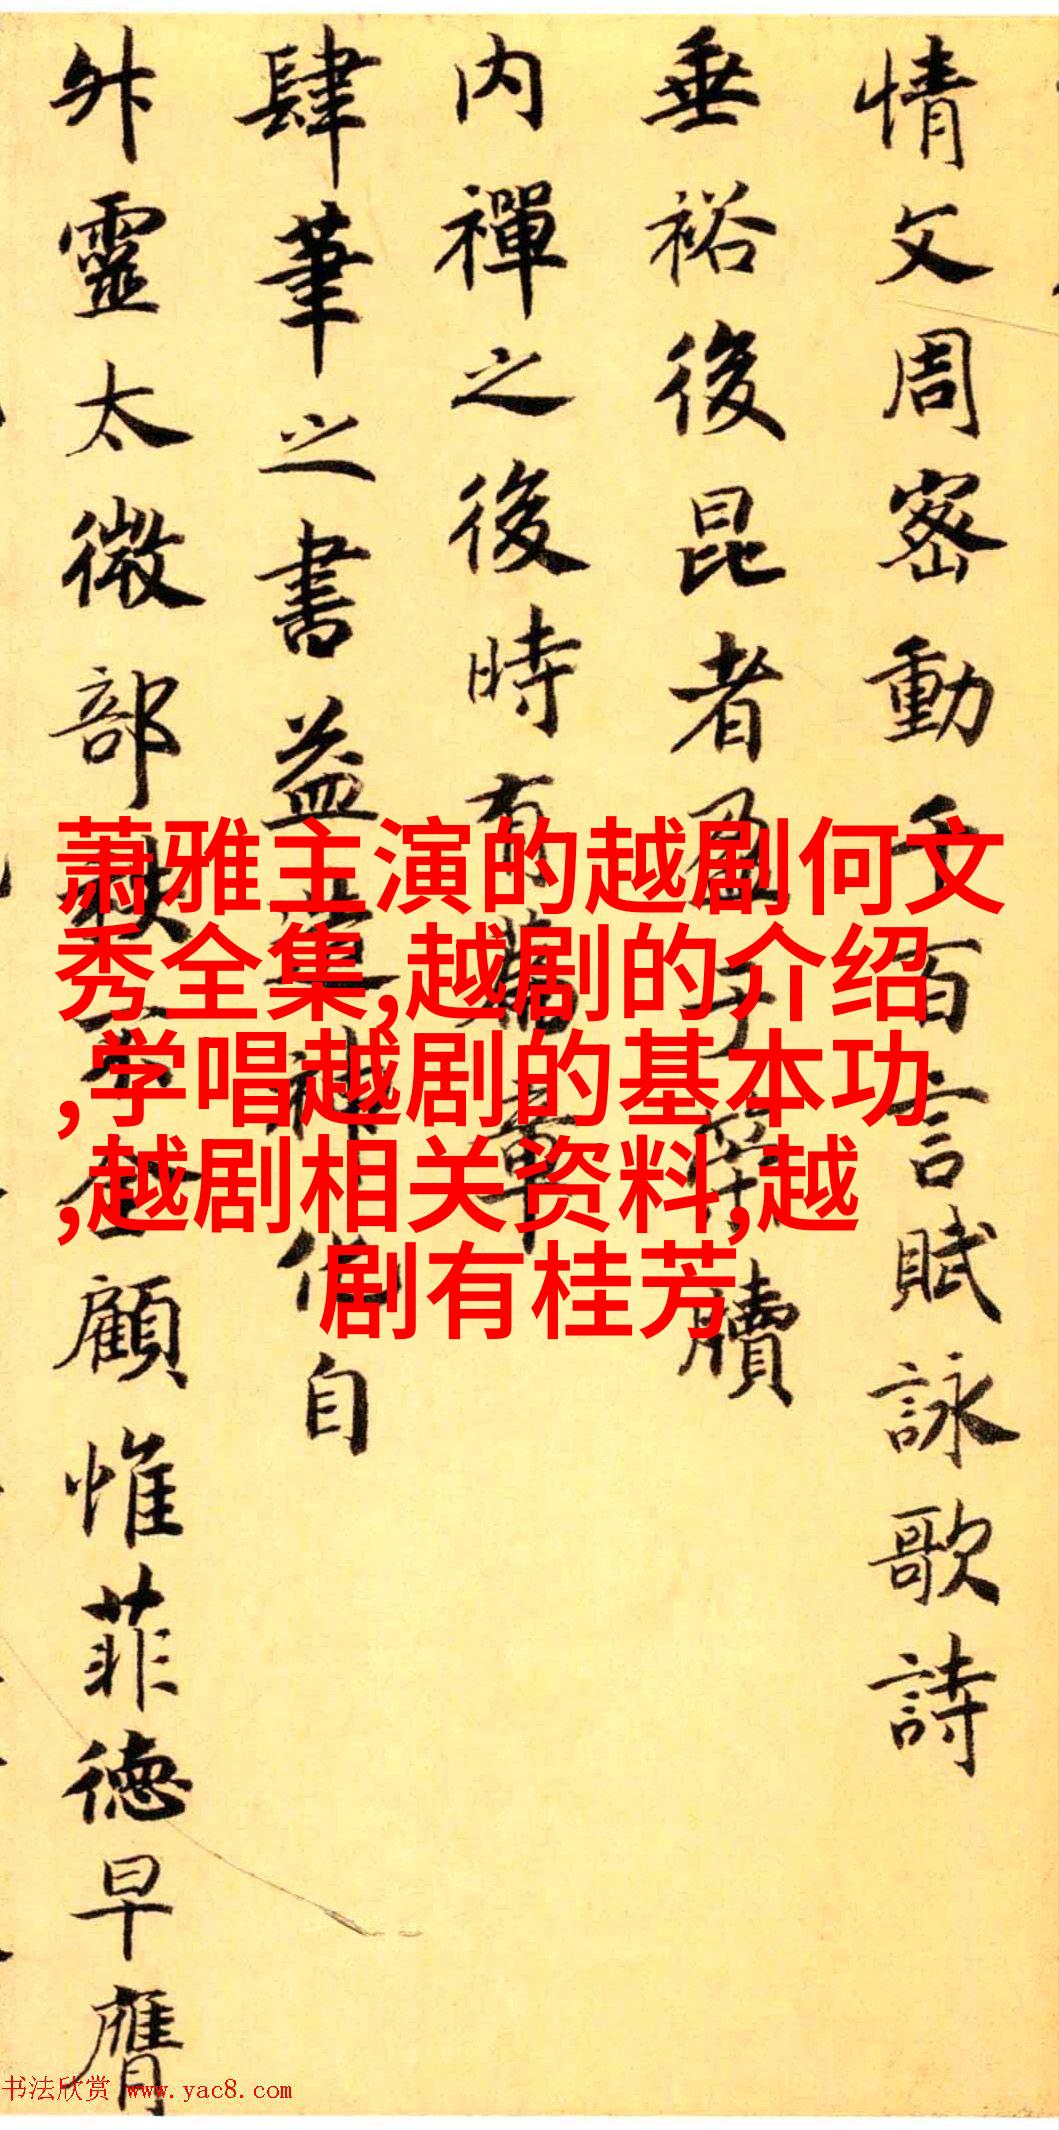 情文周密動千百言賦詠歌詩
垂裕後昆者盈于牘
内禪之後時有章
肆筆之書益神自
靈太微部顧惟菲德早膺
萧雅主演的越剧何文
秀全集,越剧的介绍
,学唱越剧的基本功
,越剧相关资料,越
剧有桂芳
书法欣赏 www.yac8.com